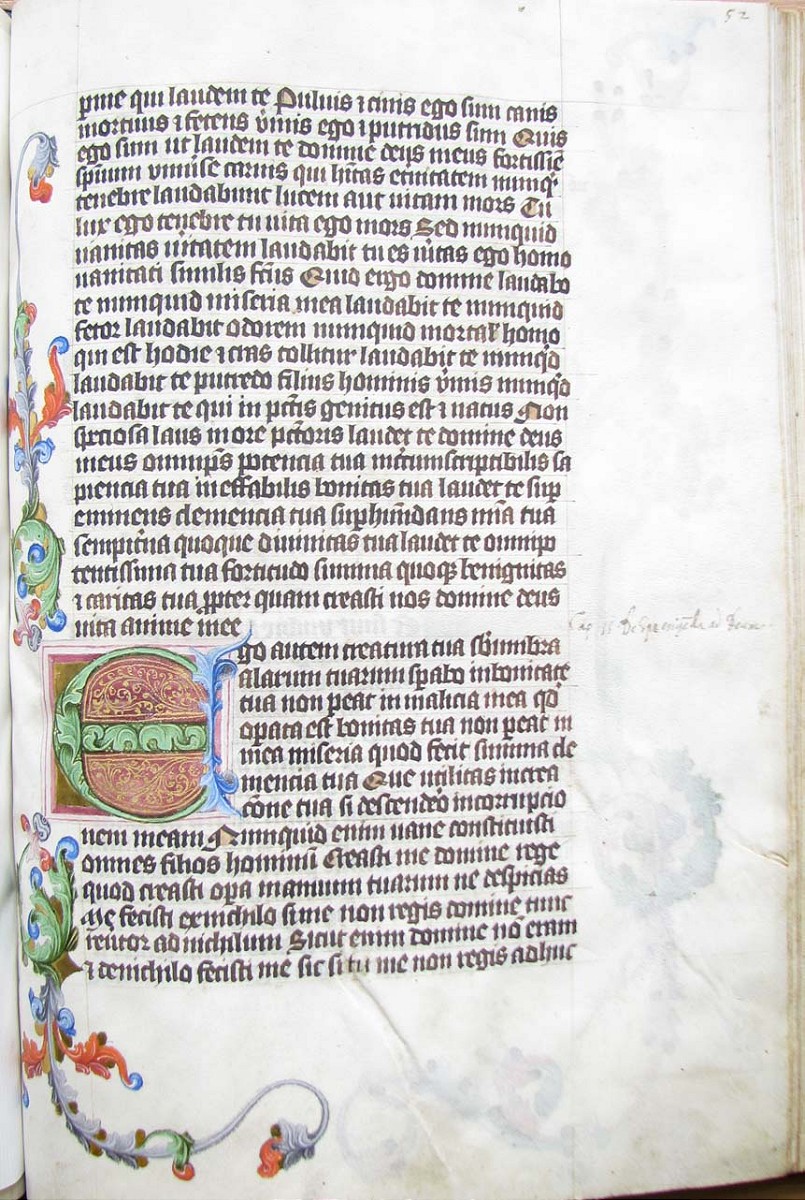 52
pme qui laudem te Puluis ⁊ cinis ego sum canis
mortuus ⁊ fetens v̾mis ego ⁊ putridus sum Quis
ego sum ut laudem te domine deus meus fortissie̅
sp̅uum vniu̾se carnis qui h̅itas et̾nitatem nu̅nq̾
tenebre laudabunt lucem aut uitam mors Tu
lux ego tenebre tu uita ego mors Sed nunquid
uanitas u̾itatem laudabit tu es u̾itas ego homo
uanitati similis fc̅us Quid ergo domine laudabo
te nunquid miseria mea laudabit te nunquid
fetor laudabit odorem nunquid mortal̾ homo
qui est hodie ⁊ cras tollitur laudabit te nunq̾d
laudabit te putredo filius hominis v̾mis nunq̾d
laudabit te qui in pc̅tis genitus est ⁊ natus Non
sp̅ciosa laus in ore pc̅toris laudet te domine deus
meus omnip̅s potencia tua incircumscriptibilis sa
piencia tua ineffabilis bonitas tua laudet te sup̾
eminens clemencia tua sup̾habu̅dans mi̅a tua
sempit̾na quoque diuinitas tua laudet te omnipo
tentissima tua fortitudo summa quoqꝫ benignitas
⁊ caritas tua ꝓpter quam creasti nos domine deus
uita anime mee
Ego autem creatura tua sb̾ umbra
alarum tuarum sp̾abo in bonitate
tua non peat in malicia mea qd̾
op̾ata est bonitas tua non peat in
mea miseria quod fecit summa cle
mencia tua Que utilitas in crea
c̅o̅ne tua si descendero in corrupcio
nem meam Nunquid enim uane constituisti
omnes filios hominu̅ Creasti me domine rege
quod creasti op̾a manuum tuarum ne despicias
Me fecisti ex nichilo si me non regis domine nunc
reu̾tor ad nichilum Sicut enim domine no̅ eram
⁊ de nichilo fecisti me sic si tu me non regis adhuc